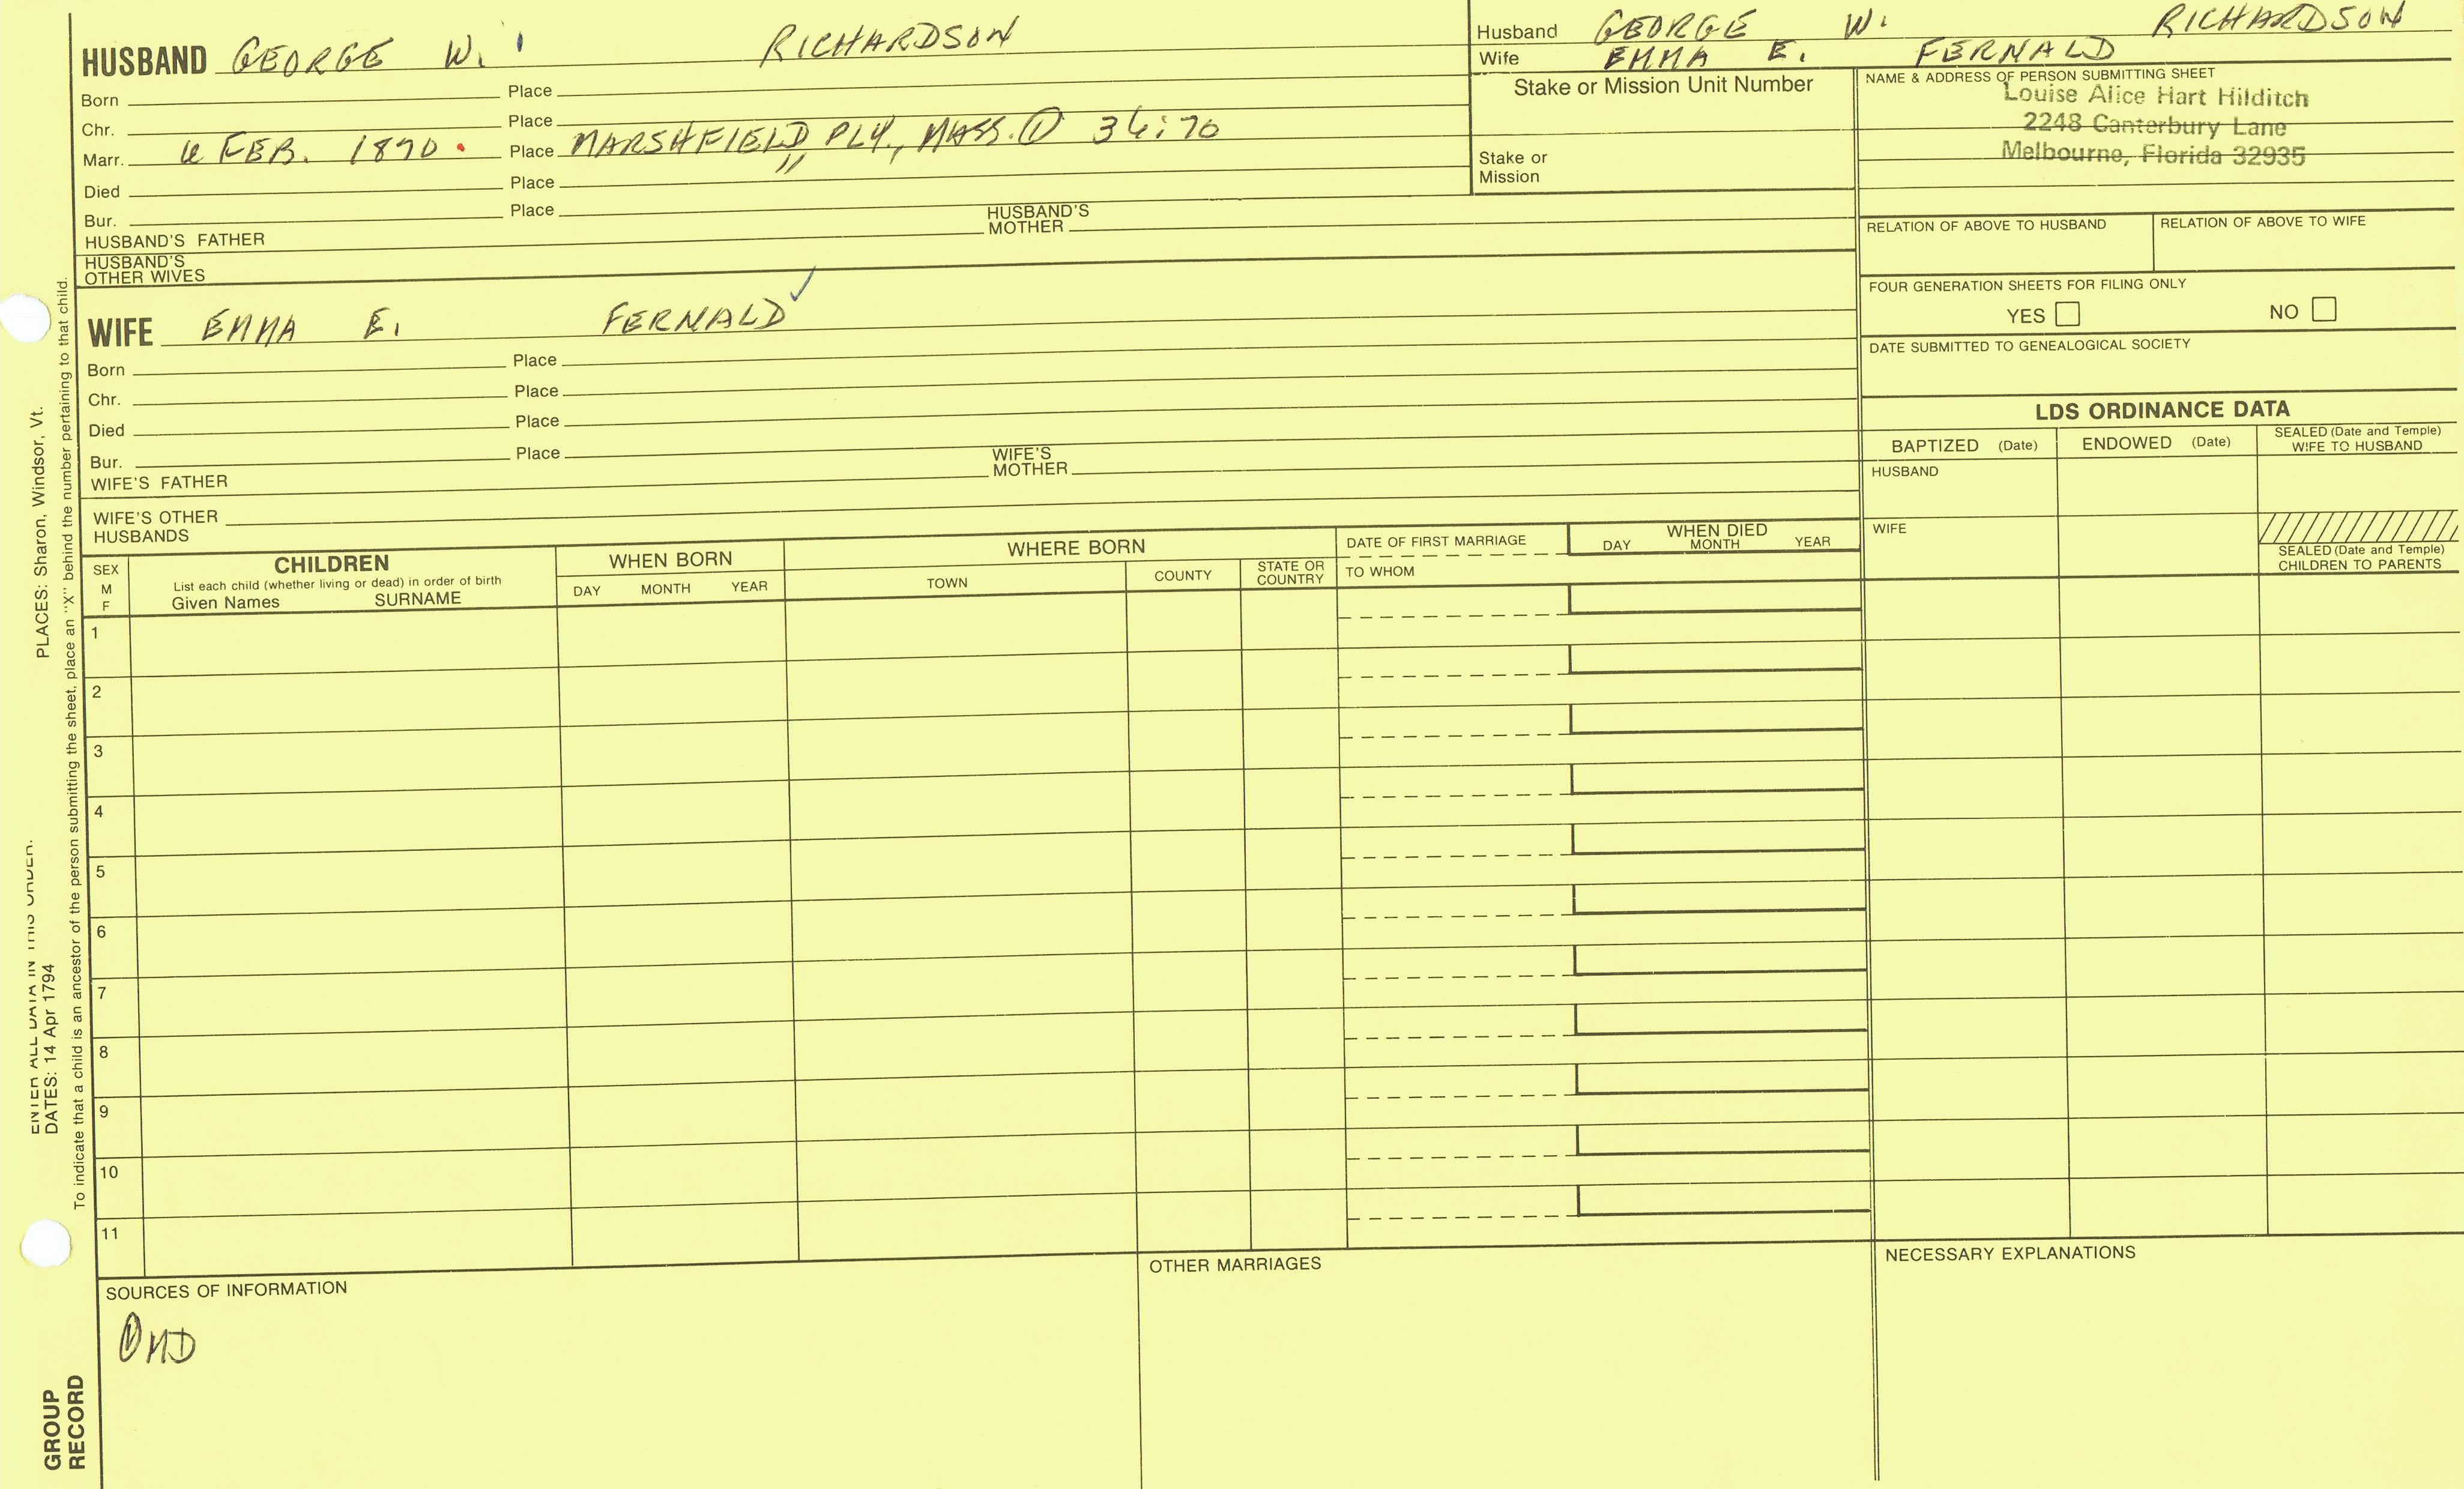 HUSBAND GEORGE W. RICHARDSON
Born Place
Chr. Place
Marr. 6 FEB. 1890. Place MARSHFIELD, PLY., MASS. ① 36:70
Died Place "
Bur. Place
HUSBAND'S FATHER HUSBAND'S MOTHER
HUSBAND'S
OTHER WIVES
WIFE EMMA E. FERNALD ✓
Born Place
Chr. Place
Died Place
Bur. Place
WIFE'S FATHER WIFE'S MOTHER
WIFE'S OTHER
HUSBANDS
Husband GEORGE W. RICHARDSON
Wife EMMA E. FERNALD
Stake or Mission Unit Number
Stake or
Mission
NAME & ADDRESS OF PERSON SUBMITTING SHEET
Louise Alice Hart Hilditch
2248 Canterbury Lane
Melbourne, Florida 32935
RELATION OF ABOVE TO HUSBAND RELATION OF ABOVE TO WIFE
FOUR GENERATION SHEETS FOR FILING ONLY
YES NO
DATE SUBMITTED TO GENEALOGICAL SOCIETY
LDS ORDINANCE DATA
BAPTIZED (Date) ENDOWED (Date) SEALED (Date and Temple)
WIFE TO HUSBAND
HUSBAND
WIFE
SEALED (Date and Temple)
CHILDREN TO PARENTS
SEX
M
F
CHILDREN
List each child (whether living or dead) in order of birth
Given Names SURNAME
WHEN BORN
DAY MONTH YEAR
WHERE BORN
TOWN COUNTY STATE OR
COUNTRY
DATE OF FIRST MARRIAGE
TO WHOM
WHEN DIED
DAY MONTH YEAR
1
2
3
4
5
6
7
8
9
10
11
SOURCES OF INFORMATION
① MD
OTHER MARRIAGES
NECESSARY EXPLANATIONS
ENTER ALL DATA IN THIS ORDER.
DATES: 14 Apr 1794 PLACES: Sharon, Windsor, Vt.
To indicate that a child is an ancestor of the person submitting the sheet, place an "X" behind the number pertaining to that child.
GROUP
RECORD